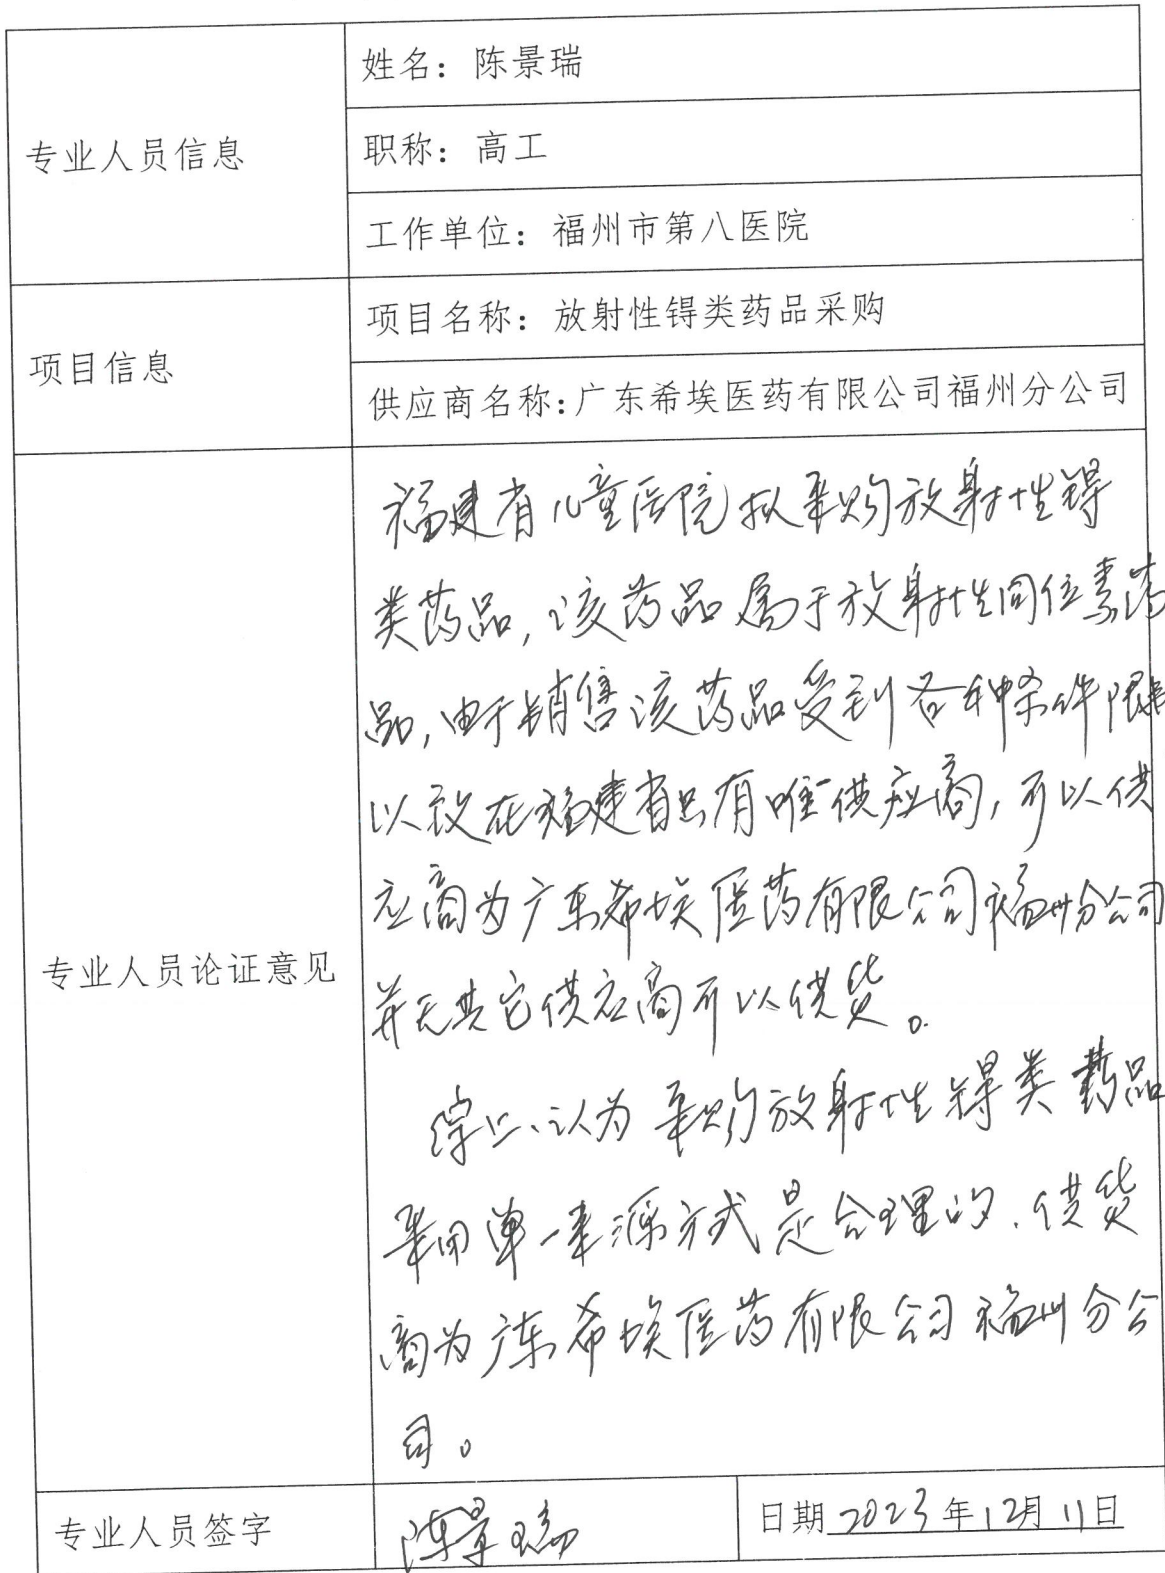 专业人员信息
姓名：陈景瑞
职称：高工
工作单位：福州市第八医院
项目信息
项目名称：放射性锝类药品采购
供应商名称：广东希埃医药有限公司福州分公司
专业人员论证意见
福建省儿童医院拟采购放射性锝
类药品，该药品属于放射性同位素药
品，由于销售该药品受到各种条件限制
以致在福建省只有唯一供应商，可以供
应商为广东希埃医药有限公司福州分公司
并无其它供应商可以供货。
综上、认为采购放射性锝类药品
采用单一来源方式是合理的、供货
商为广东希埃医药有限公司福州分公
司。
专业人员签字
陈景瑞
日期 2023年12月11日